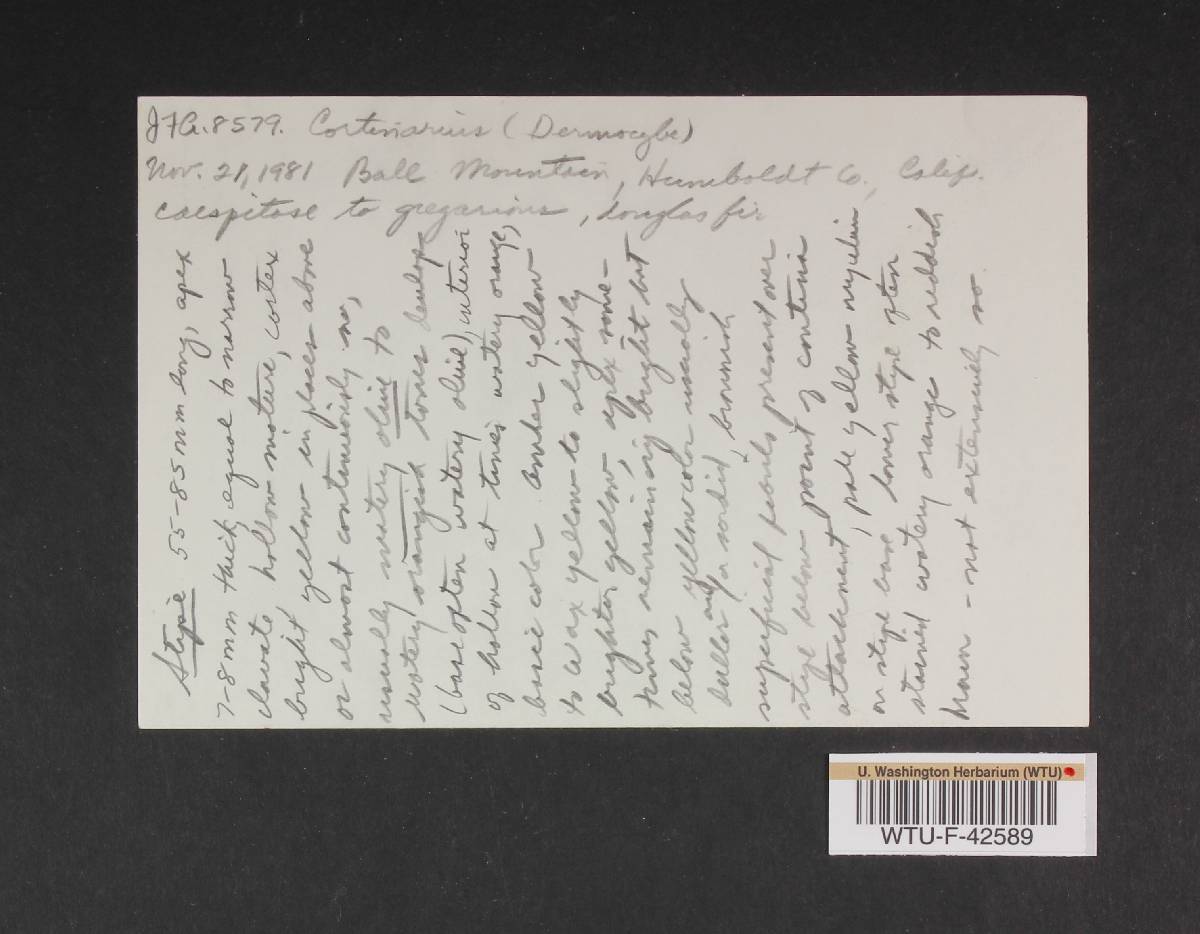 JFA.8579. Cortinarius (Dermocybe)
Nov. 21, 1981 Ball Mountain, Humboldt Co., Calif.
caespitose to gregarious, douglas fir
Stipe 55-85 mm long, apex
7-8 mm thick, equal to narrow
clavate, hollow mature, cortex
bright yellow in places above
or almost continuously so,
usually watery olive to
watery orangish tones develope
(base often watery olive), interior
of hollow at times watery orange,
basic color amber yellow
to wax yellow to slightly
brighter yellow, apex some-
times remaining bright but
below yellow color usually
duller and/or sordid, brownish
superficial fibrils present over
stipe below point of cortina
attachment, pale yellow mycelium
on stipe base lower stipe often
stained watery orange to reddish
brown - not extensively so
U. Washington Herbarium (WTU)
WTU-F-42589